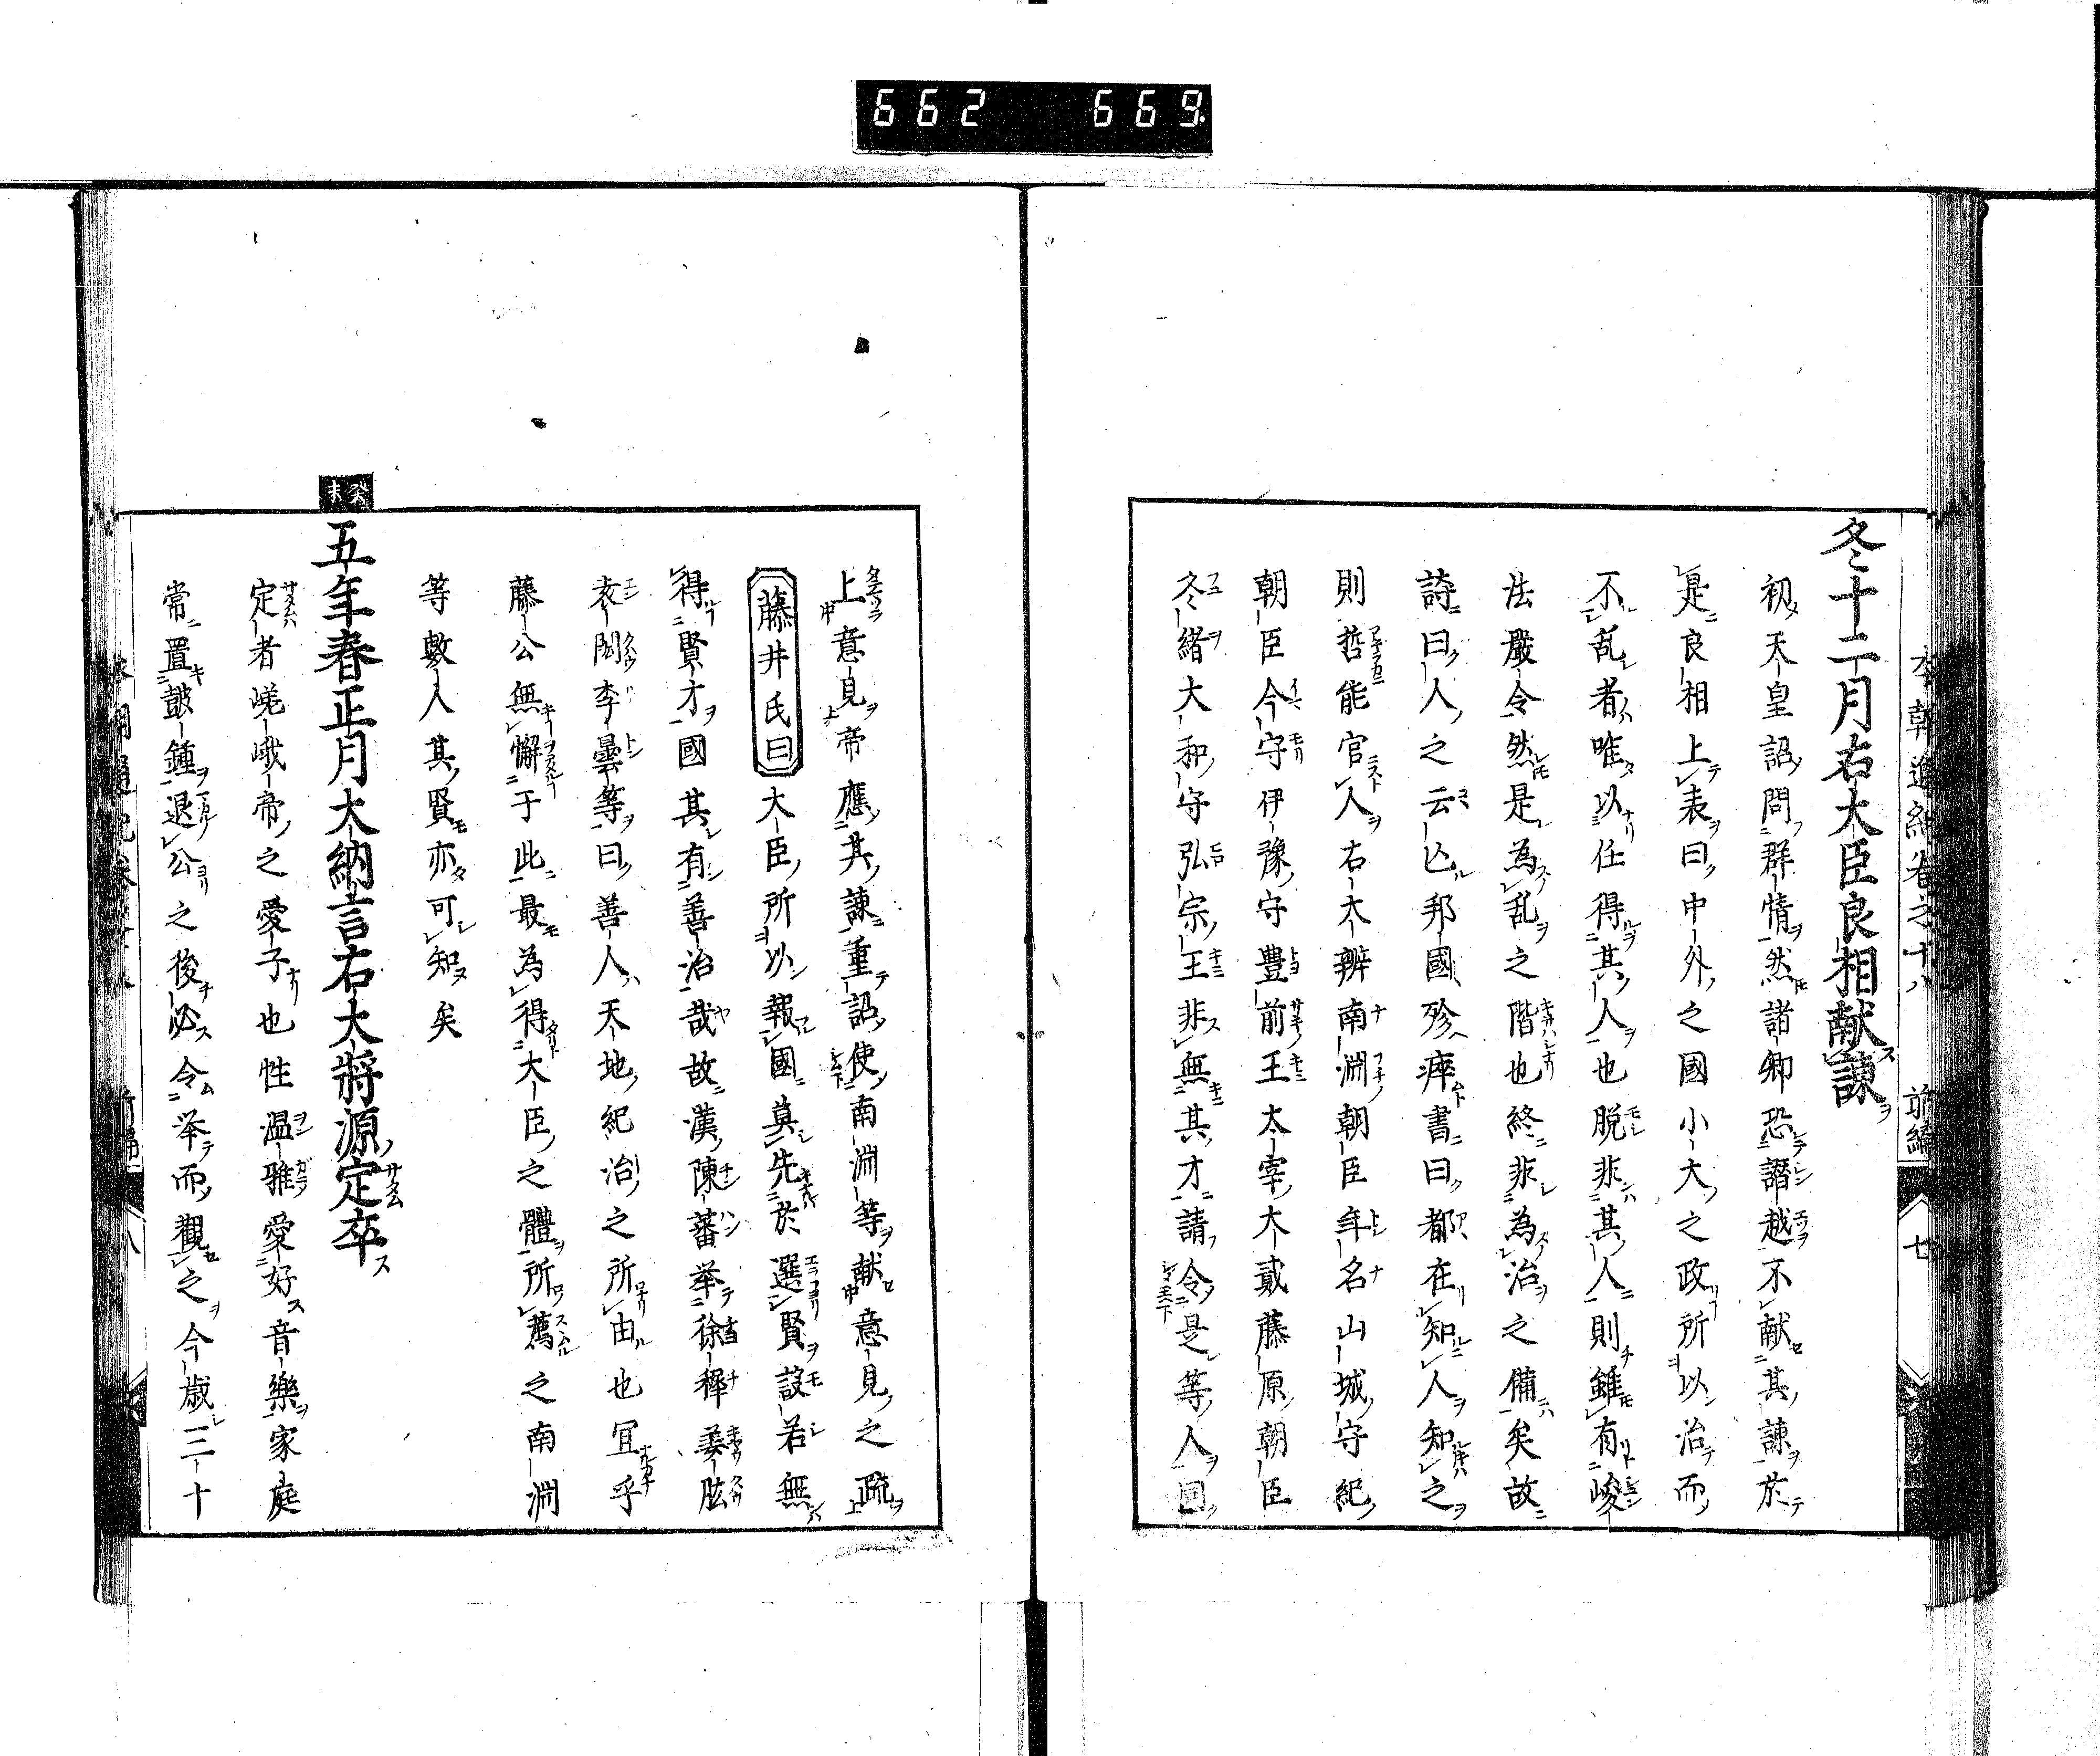 662 669
本朝通紀卷之十八 前編 七
冬十二月右大臣良相献諫
初天皇詔問群情然諸卿恐譖越不献其諫於
是良相上表曰中外之國小大之政所以治而
不乱者唯以任得其人也脱非其人則雖有峻
法嚴令然是為乱之階也終非為治之備矣故
詩曰人之云亡邦國殄瘁書曰都在知人知之
則哲能官人右大辨南淵朝臣年名山城守紀
朝臣今守伊豫守豊前王太宰大貳藤原朝臣
冬緒大和守弘宗王非無其才請令是等人
上意見帝應其諫重詔使南淵等献意見之疏
藤井氏曰 大臣所以報國莫先於選賢設若無
得賢才國其有善治哉故漢陳蕃举徐穉姜肱
袁閎李曇等曰善人天地紀治之所由也宜乎
藤公無懈于此最為得大臣之體所薦之南淵
等數人其賢亦可知矣
癸未
五年春正月大納言右大將源定卒
定者嵯峨帝之愛子也性温雅愛好音樂家庭
常置鼓鍾退公之後必令举而觀之今歳三十